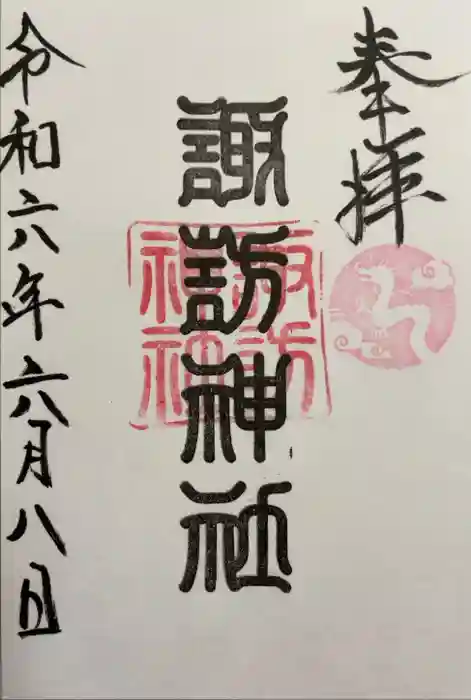 奉拝
諏訪神社
諏訪
神社
令和六年六月八日